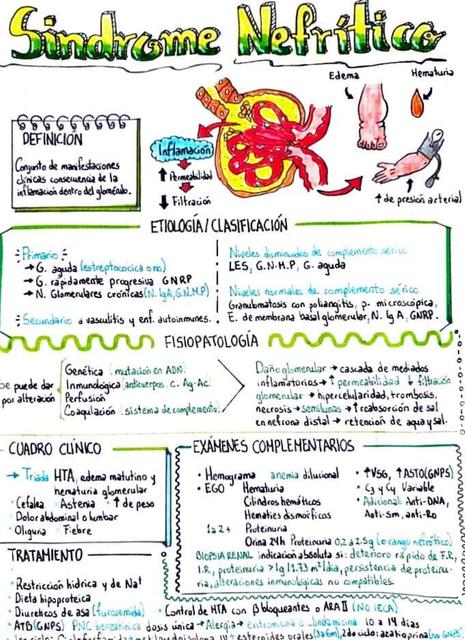 Síndrome Nefrítico
Edema
Hematuria
DEFINICIÓN
Conjunto de manifestaciones
clínicas consecuencia de la
inflamación dentro del glomérulo.
Inflamación
↑ Permeabilidad
↓ Filtración
↑ de presión arterial
ETIOLOGÍA/CLASIFICACIÓN
Primario:
→ G. aguda (estreptocócica o no)
→ G. rapidamente progresiva GNRP
→ N. Glomerulares crónicas (N. IgA, G.N.M.P)
Secundario a vasculitis y enf. autoinmunes.
Niveles disminuidos de complemento sérico
LES, G.N.M.P, G. aguda
Niveles normales de complemento sérico
Granulomatosis con poliangitis, p. microscópica,
E. de membrana basal glomerular, N. IgA, GNRP.
FISIOPATOLOGÍA
Se puede dar
por alteración
Genética (mutación en ADN)
Inmunológica (anticuerpos, C. Ag-Ac)
Perfusión
Coagulación (sistema de complemento)
Daño glomerular → cascada de mediados
inflamatorios → ↑ permeabilidad ↓ filtración
glomerular → hipercelularidad, trombosis,
necrosis → semilunas → ↑ reabsorción de sal
en nefrona distal → retención de agua y sal.
CUADRO CLÍNICO
→ Triada HTA, edema matutino y
hematuria glomerular
• Cefalea • Astenia • ↑ de peso
Dolor abdominal o lumbar
• Oliguria • Fiebre
EXÁMENES COMPLEMENTARIOS
• Hemograma anemia dilucional
• EGO Hematuria
Cilindros hemáticos
Hematíes dismórficos
1 a 2+ Proteinuria
Orina 24h Proteinuria 0.2 a 2.5g (o rango nefrótico)
• ↑ VSG, ↑ ASTO (GNPS)
• C3 y C4 Variable
• Adicional: Anti-DNA,
Anti-Sm, anti-Ro
BIOPSIA RENAL indicación absoluta si: deterioro rápido de F.R,
I.R, proteinuria > 1g/1.73 m² día, persistencia de proteinu-
ria, alteraciones inmunológicas no compatibles.
TRATAMIENTO
• Restricción hídrica y de Na+
Dieta hipoproteica
• Diuréticos de asa (furosemida)
• Control de HTA con β bloqueantes o ARA II (NO IECA)
• ATB (GNPS) PNC benzatínica dosis única → Alergia → eritromicina o clindamicina 10 a 14 días